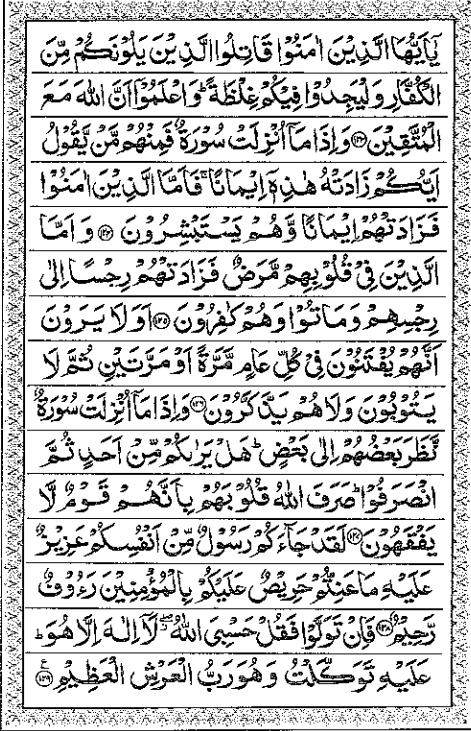 يٰۤاَيُّهَا الَّذِيۡنَ اٰمَنُوۡا قَاتِلُوا الَّذِيۡنَ يَلُوۡنَكُمۡ مِّنَ
الۡكُفَّارِ وَلۡيَجِدُوۡا فِيۡكُمۡ غِلۡظَةً ؕ وَاعۡلَمُوۡۤا اَنَّ اللّٰهَ مَعَ
الۡمُتَّقِيۡنَ ﴿۱۲۳﴾ وَاِذَا مَاۤ اُنۡزِلَتۡ سُوۡرَةٌ فَمِنۡهُمۡ مَّنۡ يَّقُوۡلُ
اَيُّكُمۡ زَادَتۡهُ هٰذِهٖۤ اِيۡمَانًا ۚ فَاَمَّا الَّذِيۡنَ اٰمَنُوۡا
فَزَادَتۡهُمۡ اِيۡمَانًا وَّهُمۡ يَسۡتَبۡشِرُوۡنَ ﴿۱۲۴﴾ وَاَمَّا
الَّذِيۡنَ فِىۡ قُلُوۡبِهِمۡ مَّرَضٌ فَزَادَتۡهُمۡ رِجۡسًا اِلٰى
رِجۡسِهِمۡ وَمَاتُوۡا وَهُمۡ كٰفِرُوۡنَ ﴿۱۲۵﴾ اَوَلَا يَرَوۡنَ
اَنَّهُمۡ يُفۡتَنُوۡنَ فِىۡ كُلِّ عَامٍ مَّرَّةً اَوۡ مَرَّتَيۡنِ ثُمَّ لَا
يَتُوۡبُوۡنَ وَلَا هُمۡ يَذَّكَّرُوۡنَ ﴿۱۲۶﴾ وَاِذَا مَاۤ اُنۡزِلَتۡ سُوۡرَةٌ
نَّظَرَ بَعۡضُهُمۡ اِلٰى بَعۡضٍ ؕ هَلۡ يَرٰٮكُمۡ مِّنۡ اَحَدٍ ثُمَّ
انۡصَرَفُوۡا ؕ صَرَفَ اللّٰهُ قُلُوۡبَهُمۡ بِاَنَّهُمۡ قَوۡمٌ لَّا
يَفۡقَهُوۡنَ ﴿۱۲۷﴾ لَقَدۡ جَآءَكُمۡ رَسُوۡلٌ مِّنۡ اَنۡفُسِكُمۡ عَزِيۡزٌ
عَلَيۡهِ مَا عَنِتُّمۡ حَرِيۡصٌ عَلَيۡكُمۡ بِالۡمُؤۡمِنِيۡنَ رَءُوۡفٌ
رَّحِيۡمٌ ﴿۱۲۸﴾ فَاِنۡ تَوَلَّوۡا فَقُلۡ حَسۡبِىَ اللّٰهُ ۖ لَاۤ اِلٰهَ اِلَّا هُوَ ؕ
عَلَيۡهِ تَوَكَّلۡتُ وَهُوَ رَبُّ الۡعَرۡشِ الۡعَظِيۡمِ ﴿۱۲۹﴾ ع